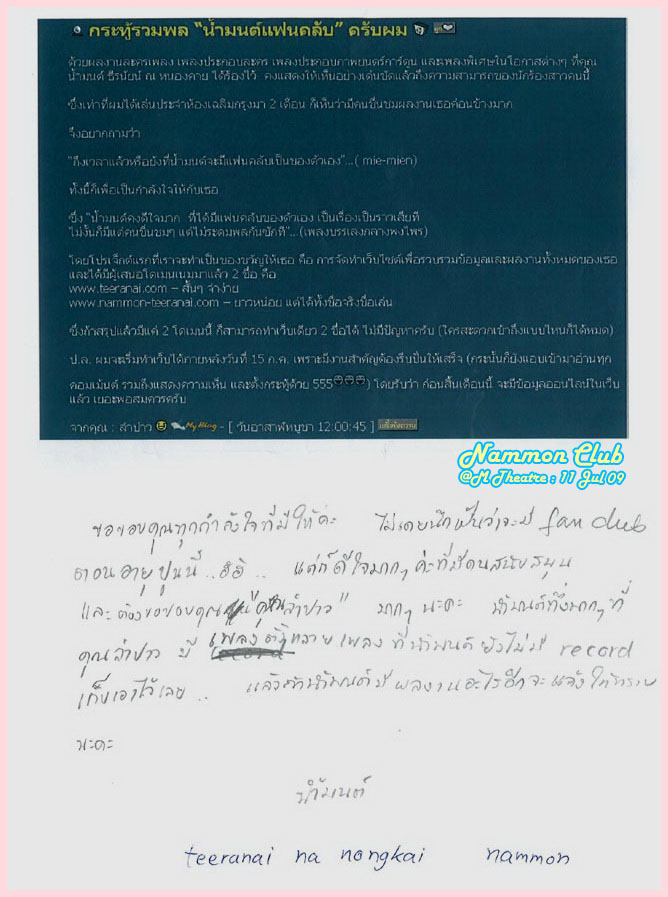 กระทู้รวมพล “น้ำมนต์แฟนคลับ” ครับผม
ด้วยผลงานละครเพลง เพลงประกอบละคร เพลงประกอบภาพยนตร์การ์ตูน และเพลงพิเศษในโอกาสต่างๆ ที่คุณ
น้ำมนต์ ธีรนัยน์ ณ หนองคาย ได้ร้องไว้ คงแสดงให้เห็นอย่างเด่นชัดแล้วถึงความสามารถของนักร้องสาวคนนี้
ซึ่งเท่าที่ผมได้เล่นประจำห้องเฉลิมกรุงมา 2 เดือน ก็เห็นว่ามีคนชื่นชมผลงานเธอค่อนข้างมาก
จึงอยากถามว่า
"ถึงเวลาแล้วหรือยังที่น้ำมนต์จะมีแฟนคลับเป็นของตัวเอง"...( mie-mien)
ทั้งนี้ก็เพื่อเป็นกำลังใจให้กับเธอ
ซึ่ง "น้ำมนต์คงดีใจมาก ที่ได้มีแฟนคลับของตัวเอง เป็นเรื่องเป็นราวเสียที
ไม่งั้นก็มีแต่คนชื่นชมๆ แต่ไม่ระดมพลกันซักที"...(เพลงบรรเลงกลางพงไพร)
โดยโปรเจ็กต์แรกที่เราจะทำเป็นของขวัญให้เธอ คือ การจัดทำเว็บไซต์เพื่อรวบรวมข้อมูลและผลงานทั้งหมดของเธอ
และได้มีผู้เสนอโดเมนเนมมาแล้ว 2 ชื่อ คือ
www.teeranai.com – สั้นๆ จำง่าย
www.nammon-teeranai.com – ยาวหน่อย แต่ได้ทั้งชื่อจริงชื่อเล่น
ซึ่งถ้าสรุปแล้วมีแค่ 2 โดเมนนี้ ก็สามารถทำเว็บเดียว 2 ชื่อได้ ไม่มีปัญหาครับ (ใครสะดวกเข้าถึงแบบไหนก็ได้หมด)
ป.ล. ผมจะเริ่มทำเว็บได้ภายหลังวันที่ 15 ก.ค. เพราะมีงานสำคัญต้องรีบปั่นให้เสร็จ (กระนั้นก็ยังแอบเข้ามาอ่านทุก
คอมเม้นต์ รวมถึงแสดงความเห็น และตั้งกระทู้ด้วย 555) โดยรับว่า ก่อนสิ้นเดือนนี้ จะมีข้อมูลออนไลน์ในเว็บ
แล้ว เยอะพอสมควรครับ
จากคุณ : ลำปาว My Blog - [ วันอาสาฬหบูชา 12:00:45 ]
Nammon Club
@M Theatre : 11 Jul 09
ขอขอบคุณทุกกำลังใจที่มีให้ค่ะ ไม่เคยนึกฝันว่าจะมี fan club
ตอนอายุปูนนี้ ..ฮิฮิ... แต่ก็ดีใจมากๆ ค่ะที่มีคนสนับสนุน
และต้องขอขอบคุณ "คุณลำปาว" มากๆ นะคะ น้ำมนต์ทึ่งมากๆ ที่
คุณลำปาว มี เพลงตั้งหลายเพลง ที่น้ำมนต์ยังไม่มี record
เก็บเอาไว้เลย .. แล้วถ้าน้ำมนต์มีผลงานอะไรอีกจะแจ้งให้ทราบ
นะคะ
น้ำมนต์
teeranai na nongkai nammon